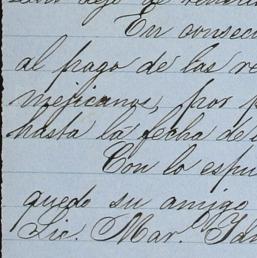 En consec
al pago de las re
mejicanos, por p
hasta la fecha de
Con lo espu
quedo su amigo
Lic. Mar.